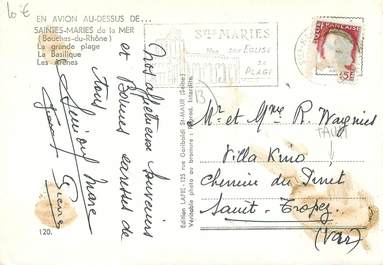 10 €
EN AVION AU-DESSUS DE...
SAINTES-MARIES de la MER
(Bouches-du-Rhône)
La grande plage
La Basilique
Les Arènes
Nos affectueux souvenirs
et Bonnes caresses de
tous
120.
Edition LAPIE - 125 rue Garibaldi St-MAUR (Seine)
Véritable photo au bromure - Reprod. Interdite.
Stes MARIES
SON EGLISE
SA
PLAGE
FRANÇAISE
13
Mr et Mme R. Wagnies
Villa Kino
Chemin du Pinet
Saint-Tropez
(Var)